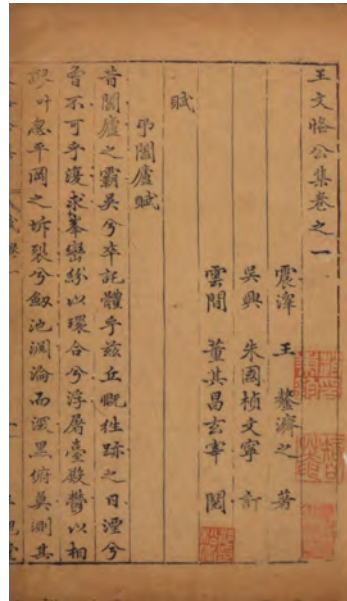 王文恪公集卷之一
震澤 王 鏊濟之 著
吳興 朱國楨文寧 訂
雲間 董其昌玄宰 閱
賦
弔闔廬賦
昔闔廬之霸吳兮卒託體乎茲丘慨往跡之日湮兮
曾不可乎復求峯巒紛以環合兮浮屠臺殿鬱以相
叶忽平岡之坼裂兮劒池淵淪而深黑俯莫測其